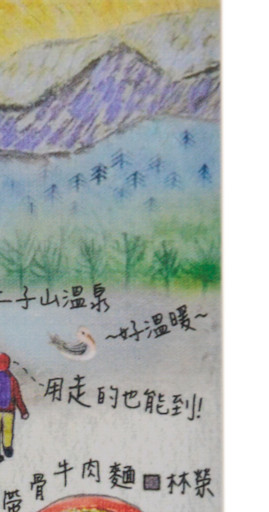 二子山溫泉
~好溫暖~
用走的也能到!
帶骨牛肉麵 林榮